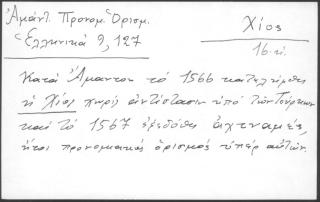 Ἀμάντ. Προνομ. Ὁρισμ.
Ἑλληνικά 9, 127
Χίος
16 αἰ.
Κατά Ἄμαντον τό 1566 κατελήφθη
ἡ Χίος χωρίς ἀντίστασιν ὑπό τῶν Τούρκων
καί τό 1567 ἐξεδόθη ἀχτναμές,
ἤτοι προνομιακός ὁρισμός ὑπέρ αὐτῶν.